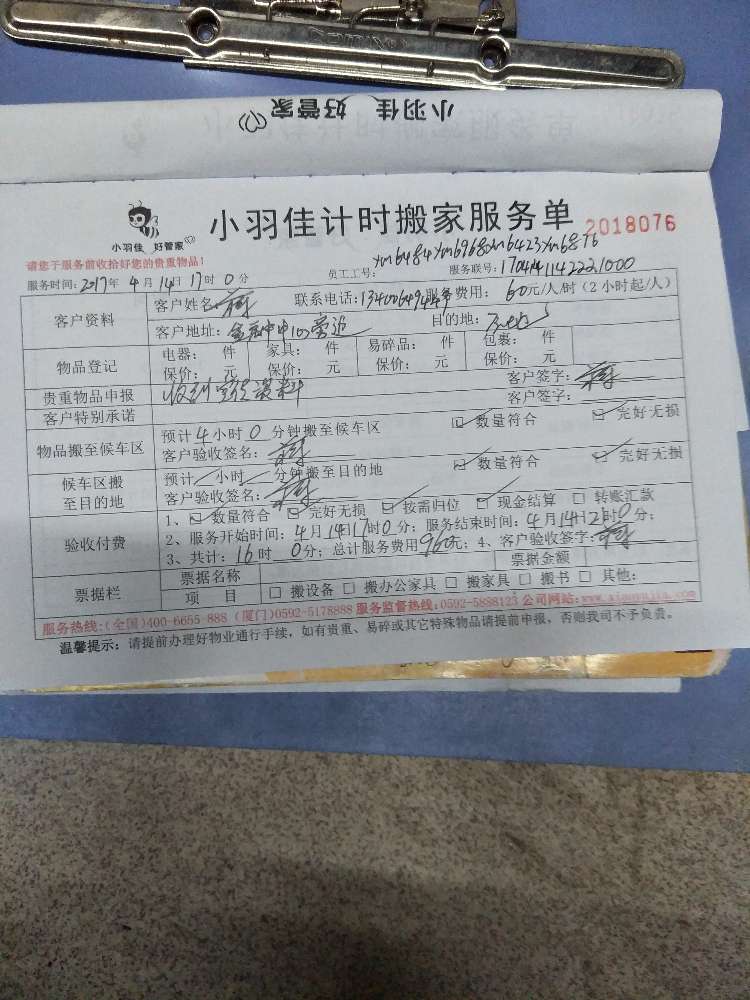 小羽佳 好管家
小羽佳 好管家
小羽佳计时搬家服务单 2018076
请您于服务前收拾好您的贵重物品!
员工工号: xm6484xm6968xm6423xm6876
服务时间: 2017年 4月 14日 17时 0分 服务联号: 1704141142221000
客户资料 客户姓名: 联系电话: 服务费用: 60元/人/时 (2小时起/人)
客户地址: 目的地:
物品登记 电器: 件 家具: 件 易碎品: 件 包裹: 件
保价: 元 保价: 元 保价: 元 保价: 元
贵重物品申报 收到 资料 客户签字:
客户特别承诺 客户签字:
物品搬至候车区 预计4小时0分钟搬至候车区 ☑ 数量符合 ☑ 完好无损
客户验收签名:
候车区搬至目的地 预计 小时 分钟搬至目的地 ☑ 数量符合 ☑ 完好无损
客户验收签名:
验收付费 1、☑ 数量符合 ☑ 完好无损 ☑ 按需归位 ☑ 现金结算 □ 转账汇款
2、服务开始时间: 4月14日17时0分; 服务结束时间: 4月14日21时0分;
3、共计: 16时 0分; 总计服务费用960元; 4、客户验收签字:
票据栏 票据名称 票据金额
项 目 □ 搬设备 □ 搬办公家具 □ 搬家具 □ 搬书 □ 其他:
服务热线:(全国)400-6655-888 (厦门)0592-5178888 服务监督热线:0592-5888123 公司网站:www.xiaoyujia.com
温馨提示: 请提前办理好物业通行手续, 如有贵重、易碎或其它特殊物品请提前申报, 否则我司不予负责。